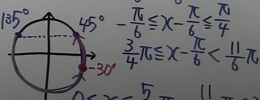 135° 45°
-30°
-π/6 ≦ x - π/6 ≦ π/4
3/4 π ≦ x - π/6 < 11/6 π